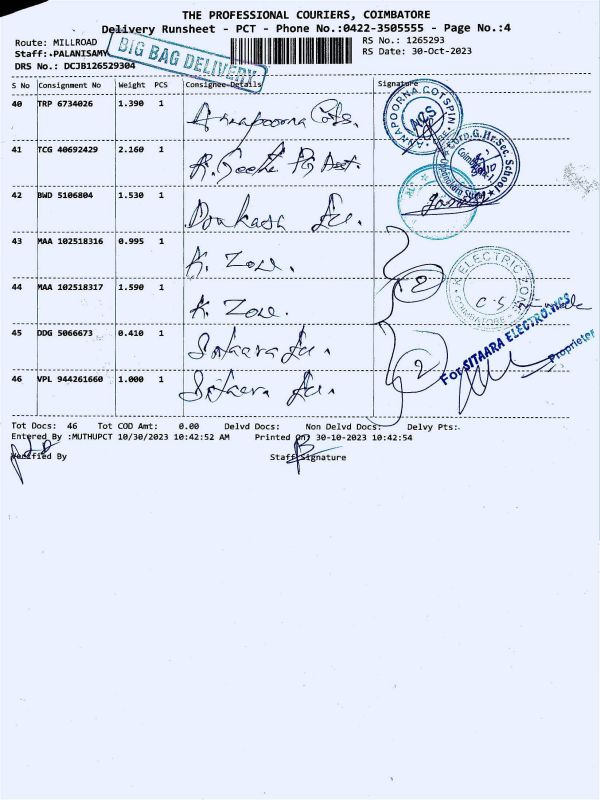 THE PROFESSIONAL COURIERS, COIMBATORE
Delivery Runsheet - PCT - Phone No.:0422-3505555 - Page No.:4
Route: MILLROAD
RS No.: 1265293
Staff:-PALANISAMY
RS Date: 30-Oct-2023
BIG BAG DELIVERY
DRS No.: DCJB126529304
S No Consignment No Weight PCS Consignee Details Signature
40 TRP 6734026 1.390 1 Annapoorna Cots.
41 TCG 40692429 2.160 1
42 BWD 5106804 1.530 1
43 MAA 102518316 0.995 1 K. Zone.
44 MAA 102518317 1.590 1 K. Zone.
45 DDG 5066673 0.410 1
46 VPL 944261660 1.000 1
ANNAPOORNA COTSPIN
2
K ELECTRIC ZONE
COIMBATORE
2
For SITAARA ELECTRONICS
Proprietor
Tot Docs: 46 Tot COD Amt: 0.00 Delvd Docs: Non Delvd Docs: Delvy Pts:
Entered By :MUTHUPCT 10/30/2023 10:42:52 AM Printed On) 30-10-2023 10:42:54
Verified By Staff Signature